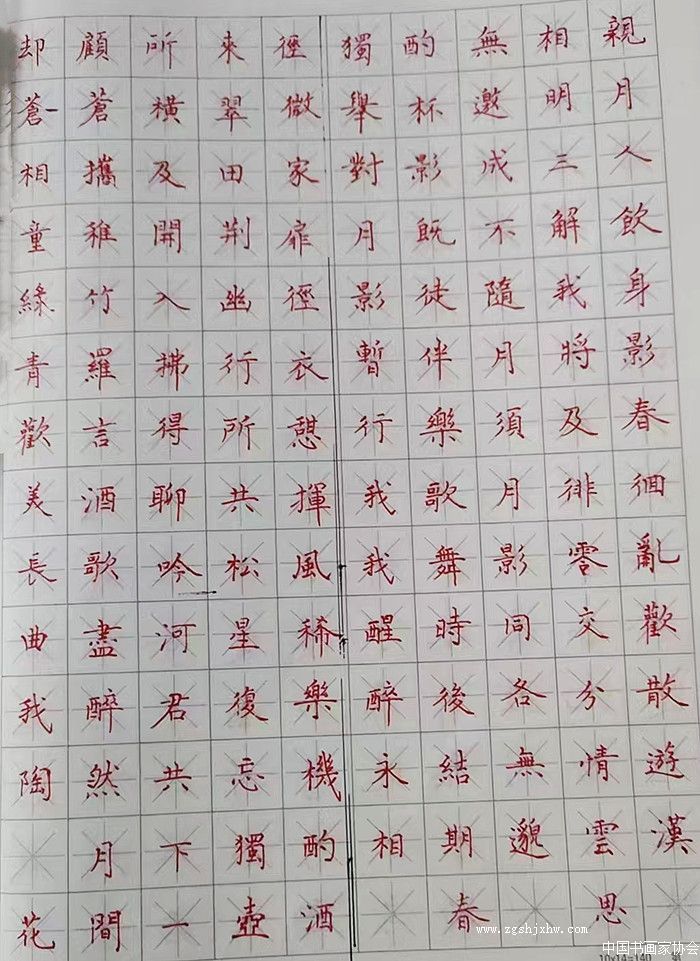 却顧所來徑
蒼蒼橫翠微
相攜及田家
童稚開荆扉
綠竹入幽徑
青羅拂行衣
歡言得所憩
美酒聊共揮
長歌吟松風
曲盡河星稀
我醉君復樂
陶然共忘機
月下獨酌
花間一壺酒
獨酌無相親
舉杯邀明月
對影成三人
月既不解飲
影徒隨我身
暫伴月將影
行樂須及春
我歌月徘徊
我舞影零亂
醒時同交歡
醉後各分散
永結無情遊
相期邈雲漢
春思
www.zgshjxhw.com
中国书画家协会